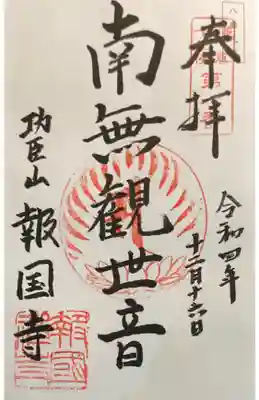 奉拝
令和四年
十二月十六日
南無観世音
功臣山
報国寺